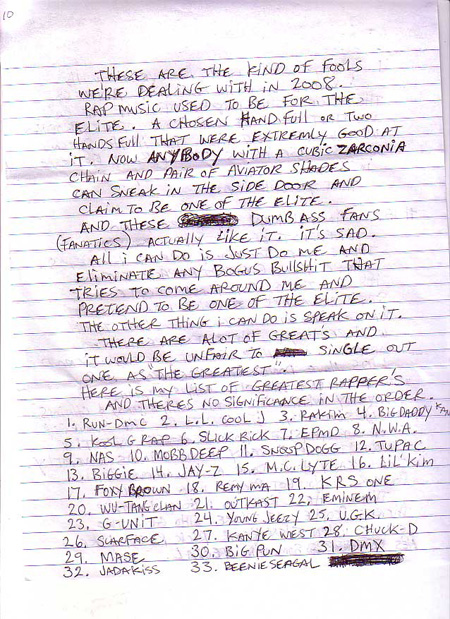 10
THESE ARE THE KIND OF FOOLS
WE'RE DEALING WITH IN 2008.
RAP MUSIC USED TO BE FOR THE
ELITE. A CHOSEN HANDFULL OR TWO
HANDSFULL THAT WERE EXTREMLY GOOD AT
iT. NOW ANYBODY WITH A CUBIC ZARCONIA
CHAIN AND PAIR OF AVIATOR SHADES
CAN SNEAK IN THE SIDE DOOR AND
CLAIM TO BE ONE OF THE ELITE.
AND THESE DUMB ASS FANS
(FANATICS) ACTUALLY LIKE IT. IT'S SAD.
All i CAN DO IS JUST DO ME AND
ELIMINATE ANY BOGUS BULLSHIT THAT
TRIES TO COME AROUND ME AND
PRETEND TO BE ONE OF THE ELITE.
THE OTHER THING i CAN DO IS SPEAK ON IT.
THERE ARE ALOT OF GREAT'S AND
iT WOULD BE UNFAIR TO SINGLE OUT
ONE AS "THE GREATEST".
HERE IS MY LIST OF GREATEST RAPPER'S
AND THERES NO SIGNIFICANCE IN THE ORDER.
1. RUN-DMC 2. L.L. COOL J 3. RAKIM 4. BIG DADDY KANE
5. KOOL G RAP 6. SLICK RICK 7. EPMD 8. N.W.A.
9. NAS 10. MOBB DEEP 11. SNOOP DOGG 12. TUPAC
13. BIGGIE 14. JAY-Z 15. M.C. LYTE 16. LIL' KIM
17. FOXY BROWN 18. REMY MA 19. KRS ONE
20. WU-TANG CLAN 21. OUTKAST 22. EMINEM
23. G-UNIT 24. YOUNG JEEZY 25. U.G.K.
26. SCARFACE 27. KANYE WEST 28. CHUCK-D
29. MASE 30. BIG PUN 31. DMX
32. JADAKISS 33. BEENIE SEAGAL